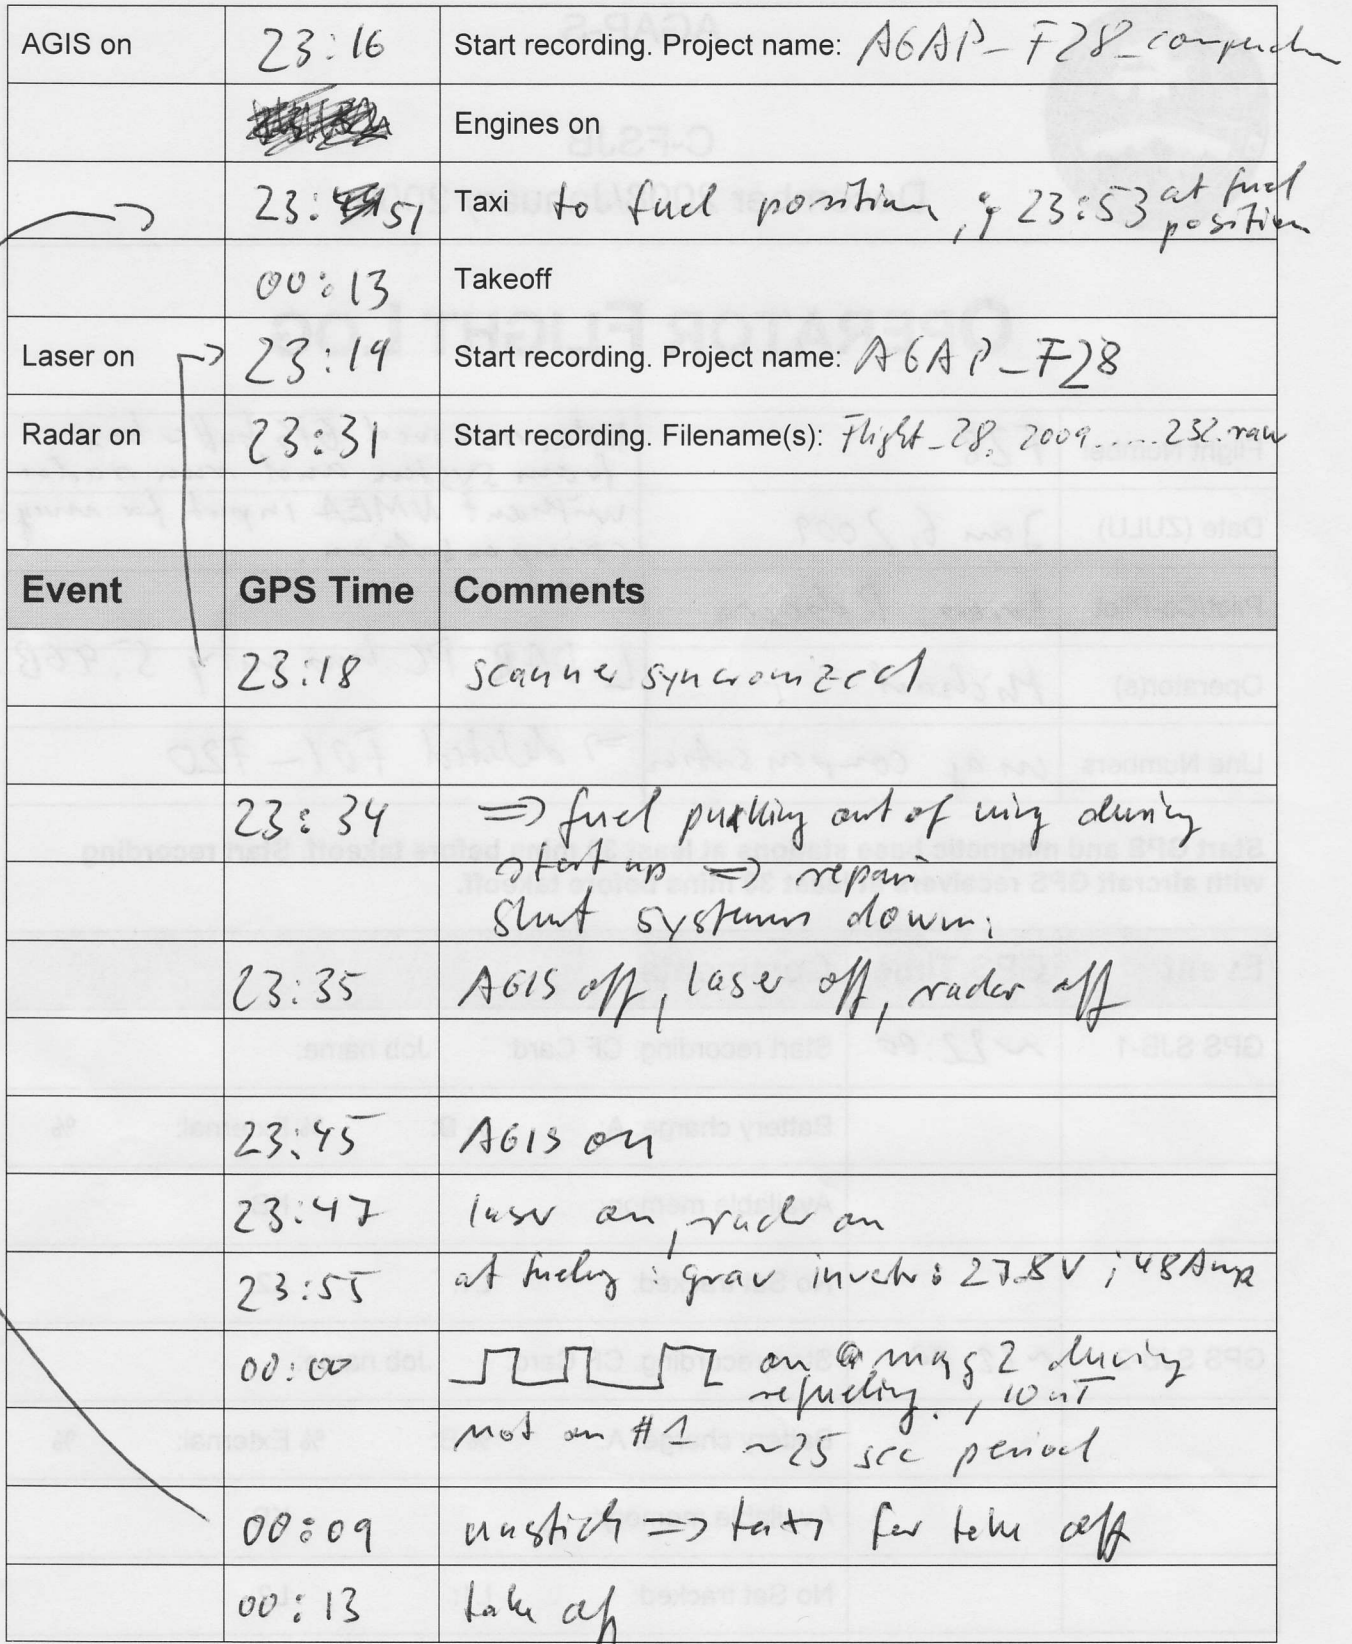 AGIS on 23:16 Start recording. Project name: AGAP_F28_
Engines on
23:51 Taxi to fuel position, 23:53 at fuel position
00:13 Takeoff
Laser on 23:19 Start recording. Project name: AGAP_F28
Radar on 23:31 Start recording. Filename(s): Flight_28.2009.....232.raw
Event GPS Time Comments
23:18 scanner syncronized
23:34 => fuel out of wing during
start up => repair
Shut systems down.
23:35 AGIS off, laser off, radar off
23:45 AGIS on
23:47 laser on, radar on
23:55 at fueling: grav : 27.8V ; 48 Amp
00:00 on mag 2 during
refueling., 10 nT
not on #1 ~25 sec period
00:09 unstick => taxi for take off
00:13 take off